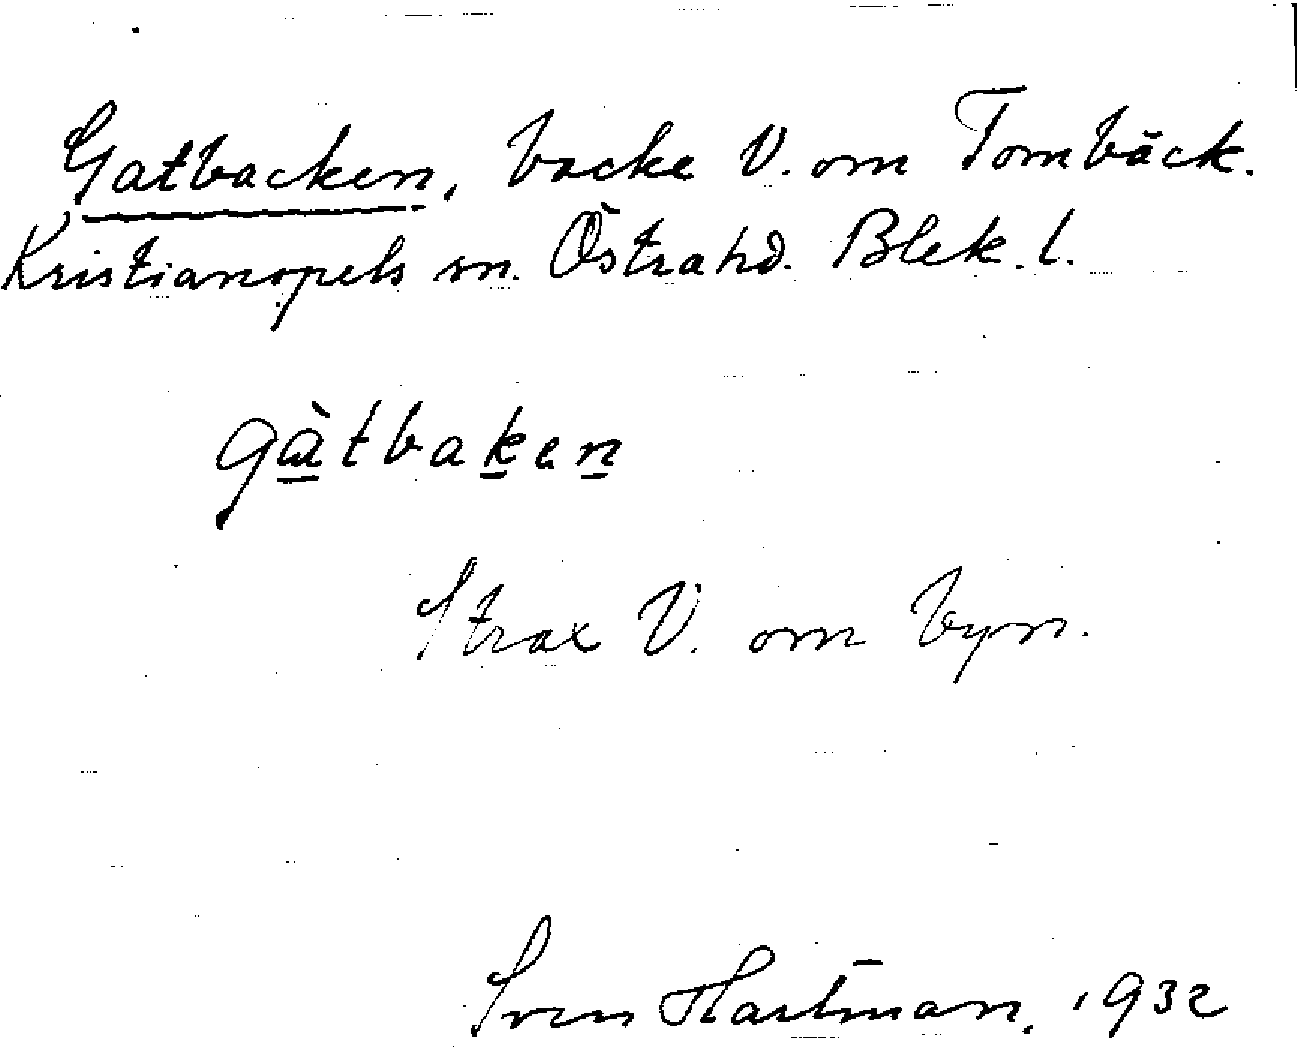 Gatbacken, backe V. om Tombäck.
Kristianopels sn. Östra hd. Blek. l.
gàtbaken
Strax V. om byn.
Sven Hartman, 1932